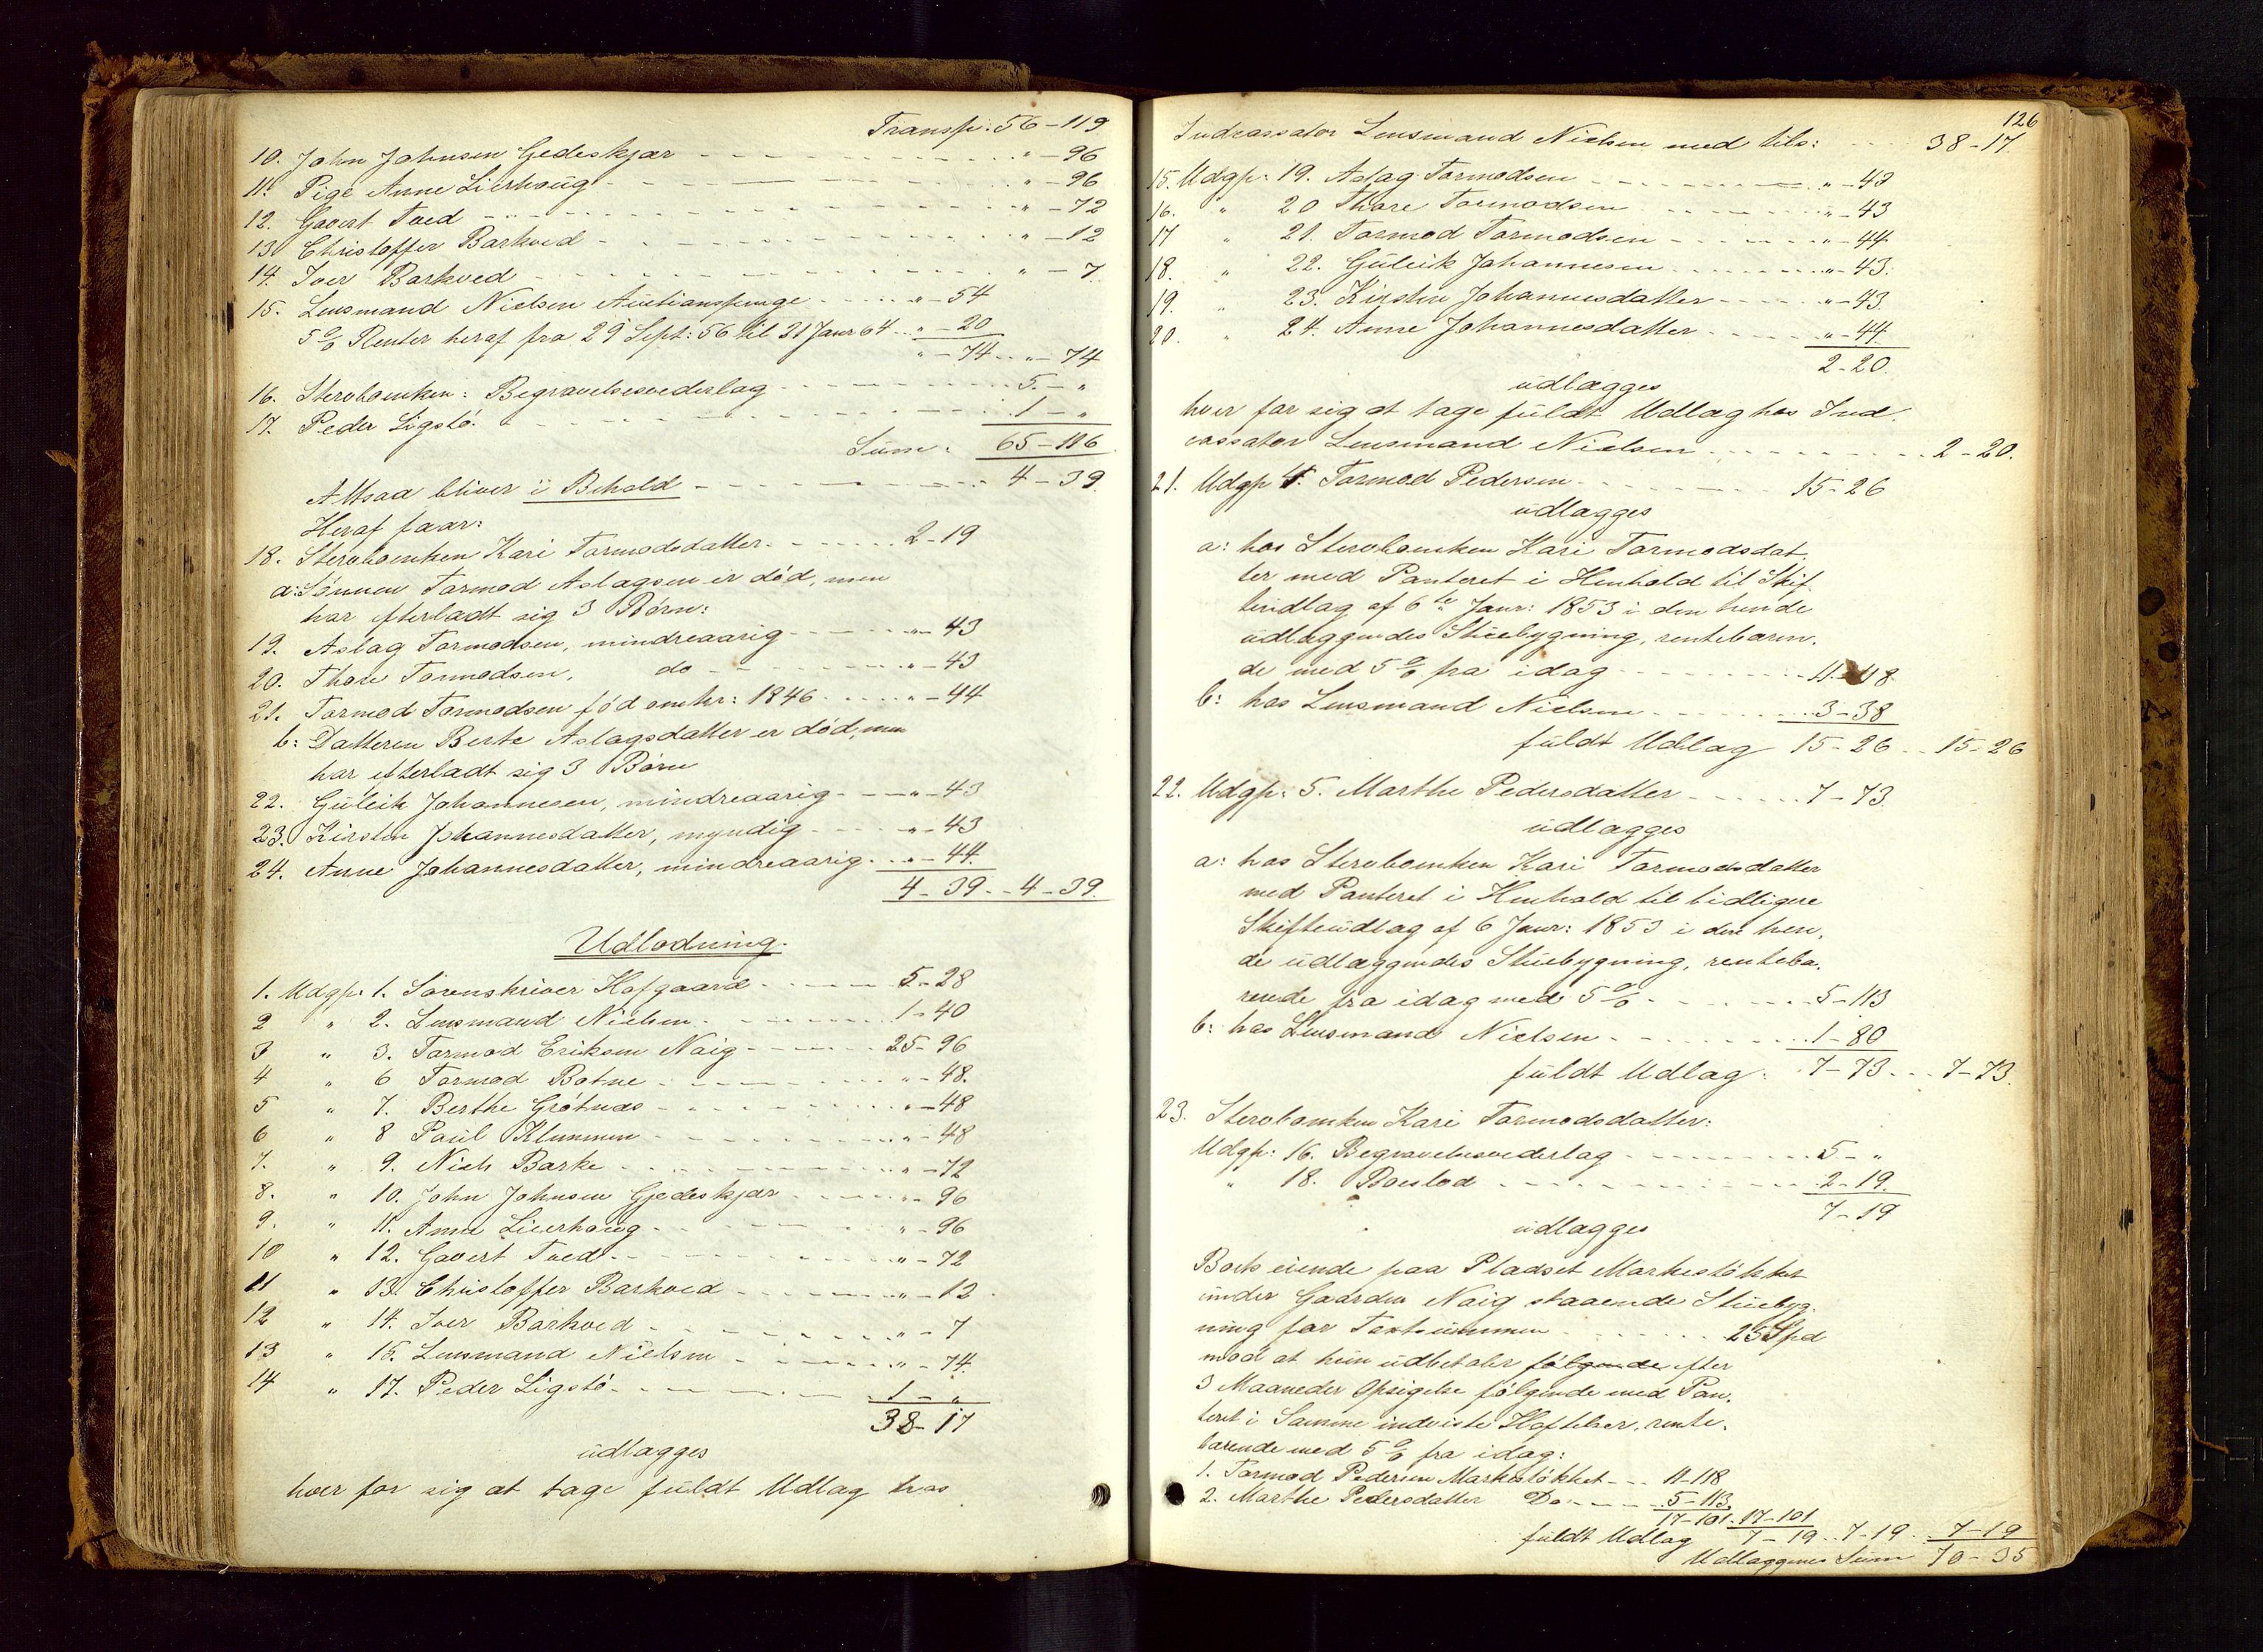 Transp: 56-119
10. John Johnsen Gedeskjær - - - " - 96
11. Pige Anne Lierhoug - - - " - 96
12. Govert Tved - - - " - 72
13 Christoffer Barkved - - - " - 12
14. Iver Barkved - - - " - 7.
15. Lensmand Nielsen Auctionspenge - - - " - 54
5 % Renter heraf fra 29 Sept: 56 til 21 Janr 64 .. " - 20
" - 74 .. " - 74
16. Stervboenken: Begravelsesvederlag - - - 5. - "
17. Peder Ligstø. - - - 1 - "
Sum: 65 - 116
Altsaa bliver i Behold - - - 4 - 39.
Heraf faar:
18. Stervboenken Kari Tormodsdatter - - - 2-19
a: Sønnen Tormod Aslagsen er død, men
har efterladt sig 3 Børn:
19. Aslag Tormodsen, mindreaarig - - - " - 43
20. Thore Tormodsen, do - - - " - 43
21. Tormod Tormodsen fød omtr: 1846 - - - " - 44
b: Datteren Berte Aslagsdatter er død, men
har efterladt sig 3 Børn
22. Guleik Johannesen, mindreaarig - - - " - 43
23. Kirsten Johannesdatter, myndig - - - " - 43
24. Anne Johannesdatter, mindreaarig - - - " - 44.
4 - 39 - - 4 - 39.
Udlodning.
1. Udgp. 1. Sorenskriver Hofgaard - - - 5-28
2 " 2. Lensmand Nielsen - - - 1-40
3 " 3. Tormod Eriksen Naig - - - 25-96
4 " 6 Tormod Botne - - - " - 48.
5 " 7. Berthe Grøtnæs - - - " - 48
6 " 8 Paul Klummen - - - " - 48
7. " 9. Nich Barke - - - " - 72
8. " 10. John Johnsen Gjedeskjær - - - " - 96
9. " 11. Anne Lierhoug - - - " - 96
10 " 12. Govert Tved - - - " - 72
11 " 13. Christoffer Barkved - - - " - 12.
12 " 14. Iver Barkved - - - " - 7
13 " 15. Lensmand Nielsen - - - " - 74.
14 " 17. Peder Ligstø - - - 1 - "
38-17
udlægges
hver for sig at tage fuldt Udlag hos
126
Indcassator Lensmand Nielsen med tils: - - - 38-17.
15. Udgp: 19. Aslag Tormodsen - - - " - 43
16. " 20 Thore Tormodsen - - - " - 43
17 " 21. Tormod Tormodsen - - - " - 44
18. " 22. Guleik Johannesen - - - " - 43.
19. " 23. Kirsten Johannesdatter - - - " - 43.
20. " 24. Anne Johannesdatter - - - " - 44.
2-20.
udlægges
hver for sig at tage fuldt Udlag hos Ind
cassator Lensmand Nielsen - - - 2-20.
21. Udgp 4. Tormod Pedersen - - - 15-26
udlægges
a: hos Stervboenken Kari Tormodsdat
ter med Panteret i Henhold til Skif
teudlag af 6te Janr: 1853 i den hende
udlæggendes Stuebygning, rentebæren
de med 5 % fra idag - - - 11-118
b: hos Lensmand Nielsen - - - 3-38
fuldt Udlag 15-26 .. 15-26
22. Udgp: 5. Marthe Pedersdatter - - - 7-73.
udlægges
a: hos Stervboenken Kari Tormodsdatter
med Panteret i Henhold til tidligere
Skifteudlag af 6 Janr: 1853 i den hen
de udlæggendes Stuebygning, renteba
rende fra idag med 5 % - - - 5-113
b: hos Lensmand Nielsen - - - 1-80
fuldt Udlag: 7-73 - - - 7-73.
23. Stervboenken Kari Tormodsdatter:
Udgp: 16. Begravelsesvederlag - - - 5 - "
" 18. Boeslod - - - 2-19.
7-19
udlægges
Boets eiende paa Pladset Markestøkket
under Gaarden Naig staaende Stuebyg
ning for Taxtsummen - - - 25 Spd
mod at hun udbetaler følgende efter
3 Maaneder Opsigelse følgende med Pan
teret i Samme indviste Hæftelser, rente
bærende med 5 % fra idag:
1. Tormod Pedersen Markestøkket - - - 11-118
2. Marthe Pedersdatter Do - - - 5-113.
17-101. 17-101
fuldt Udlag 7-19 .. 7-19 .. 7-19
Udlæggenes Sum 70-35